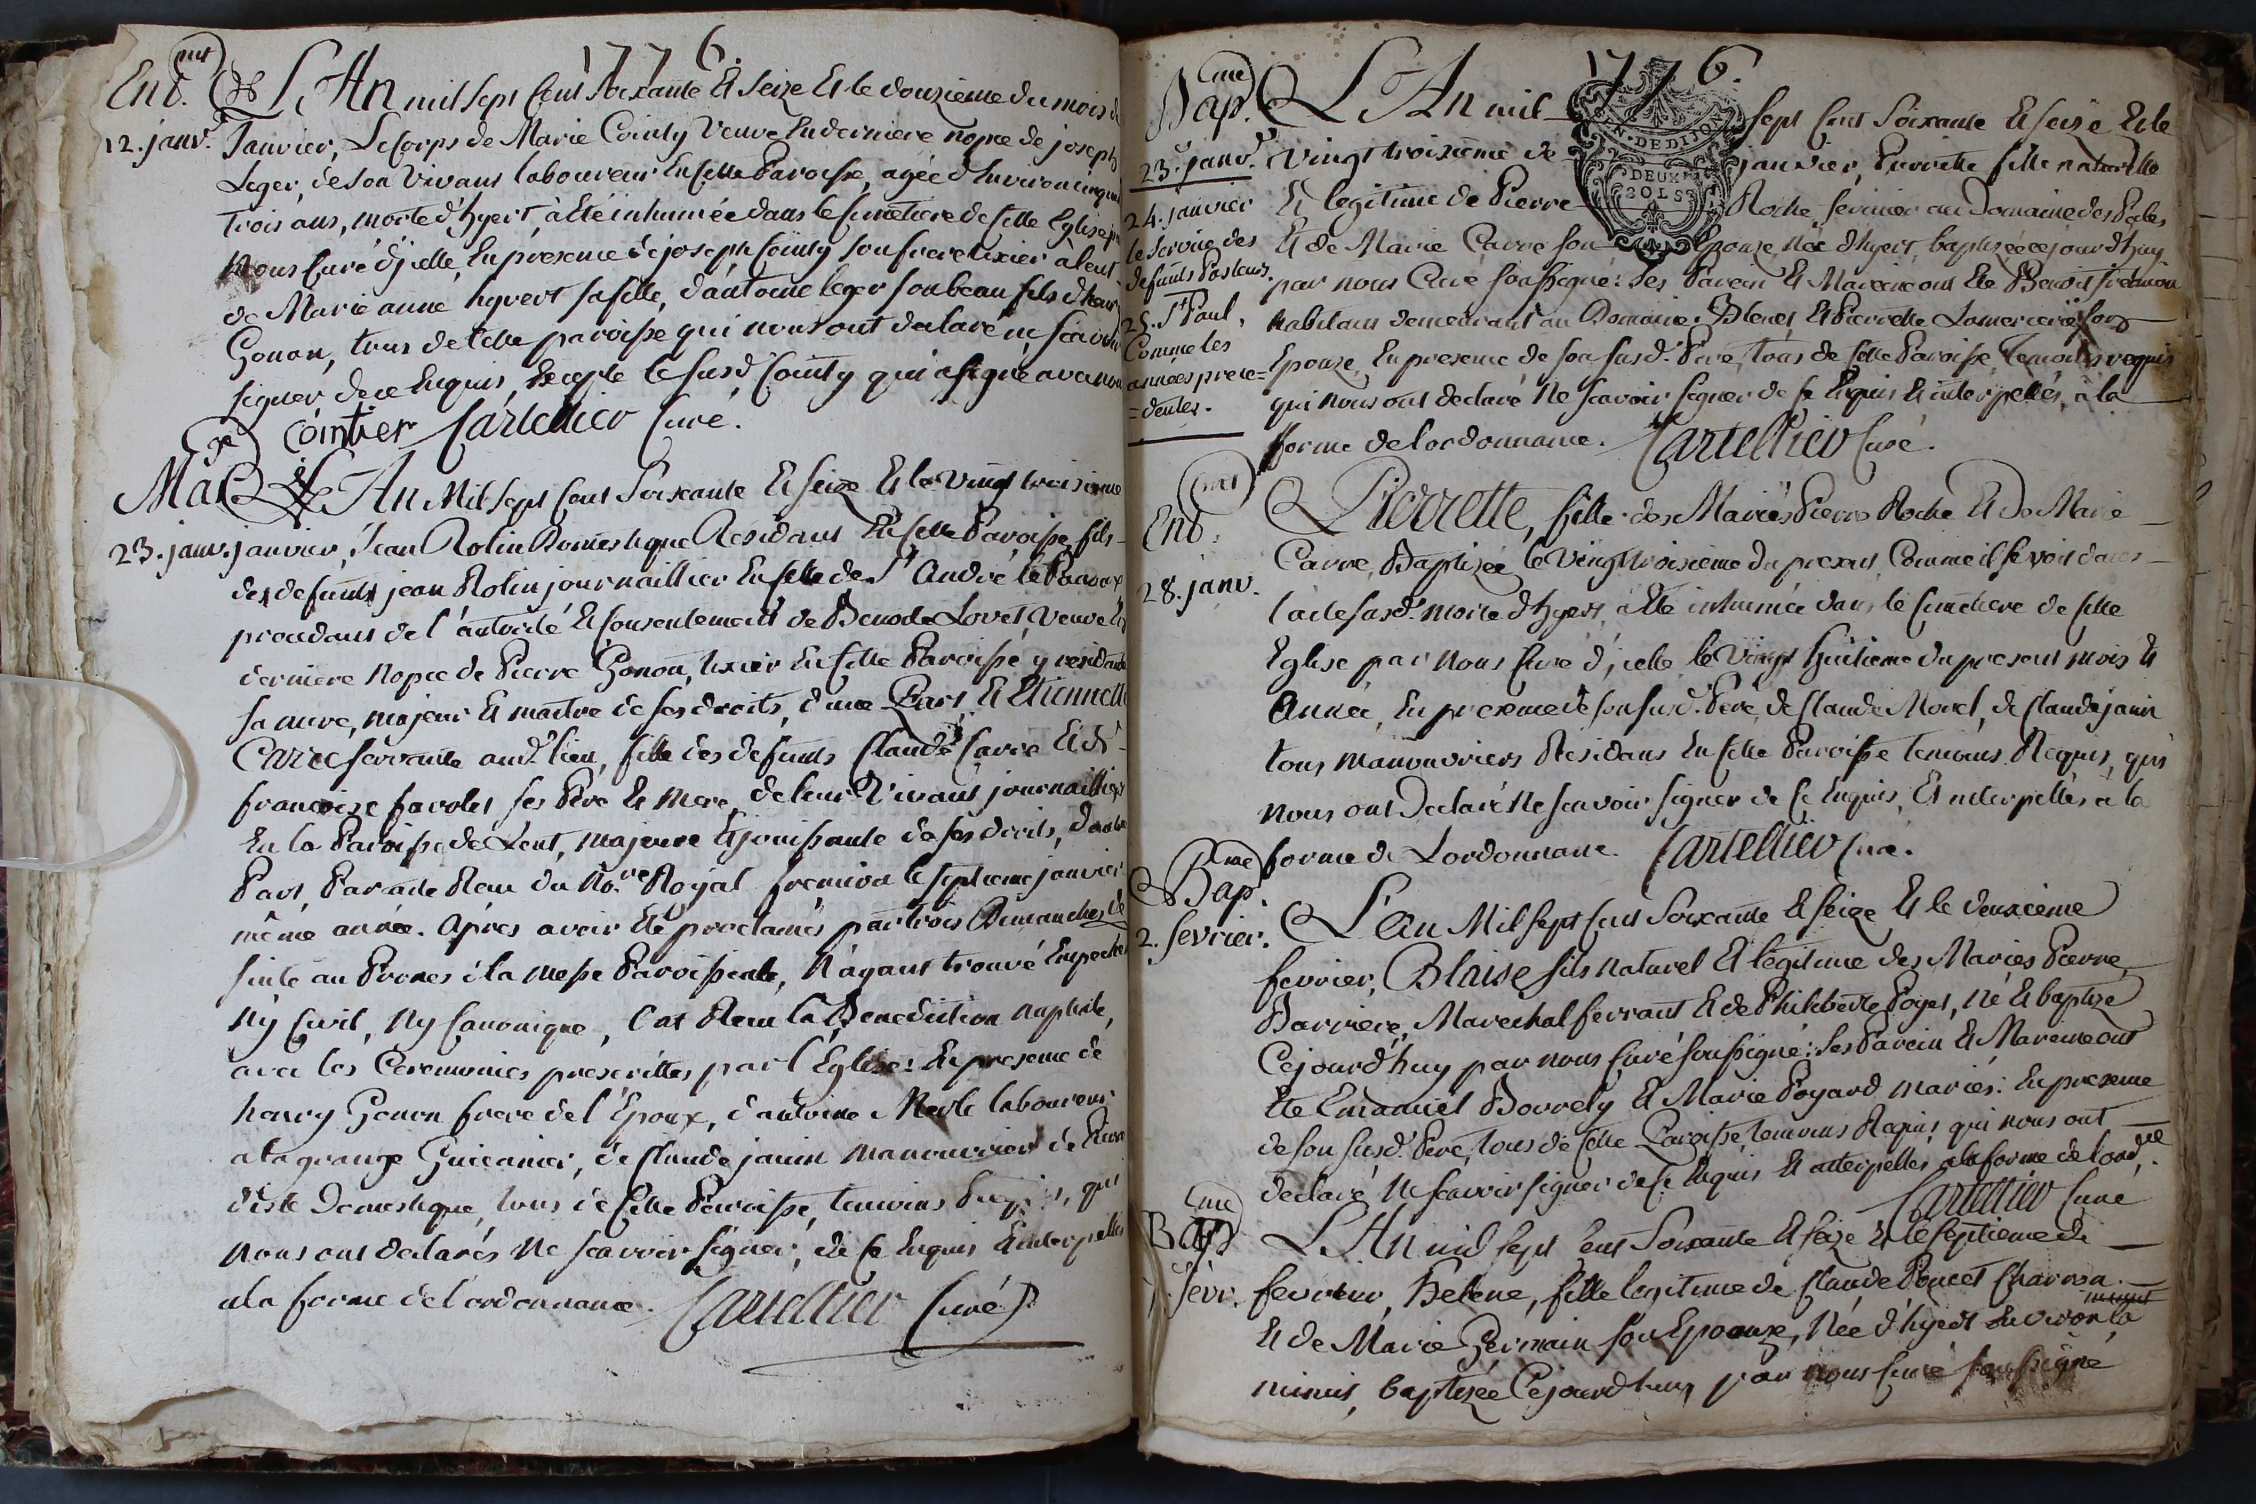 1776.
Ent.ent L'An mil sept cent soixante Et seize Et le douzieme du mois de
12. janv.r Janvier, Le Corps de Marie Cointy Veuve En derniere nopce de joseph
Leger, de son Vivant laboureur En cette Paroisse, agée d'Environ cinquante
trois ans, morte d'hyert, à Eté inhumée dans le cimetiere de cette Eglise par
Nous Curé d'jcelle, En présence de joseph Cointy son frere
de Marie anne hyvert sa fille, d'antoine leger son beau fils d'henri
Gonon, tous de cette paroisse qui nous ont déclaré ne scavoir
signer de ce Enquis, Excepté le susd. Cointy qui a signé avec nous
cointier Cartellier Curé.
Mar.ge L'An Mil sept cent Soixante Et seize Et le vingt troisieme
23. janv. janvier, Jean Rolin Domestique Residant En cette Paroisse, fils
des defunts jean Rolin journaillier En celle de St André le Panoux
procedant de l'autorité Et consentement de Benoite Lovet, Veuve En
derniere Nopce de Pierre Gonon, tixier En cette Paroisse y residante
sa mere, majeur Et maitre de ses droits, d'une Part, Et Etiennette
Carre servante aud. lieu, fille des defunts Claude Carre Et de
francoise favolet ses Pere Et Mere, de leur Vivant journailliers
En la Paroisse de Lent, majeure Et jouissante de ses droits, d'autre
Part, Par acte Reçu du No.re Royal fremion le septieme janvier
même année. Après avoir Eté proclamés par trois Dimanches de
suite au Prones de la Messe Paroissiale, N'ayant trouvé Empechement
Ny Civil, Ny Canonique, l'ont Recu la Benediction nuptiale,
avec les Ceremonies prescrittes par l'Eglise: En presence de
henry Gonon frere de l'Epoux, d'antoine Merle laboureur
a la grange Guiccanier, de Claude janin manouvrier de Pierre
diste Domestique, tous de cette Paroisse, temoins Requis, qui
nous ont declarés Ne scavoir signer, de ce Enquis Et interpellés
a la forme de l'ordonnance. Cartellier Curé
1776.
Bap.me L'An mil sept cent Soixante Et seize Et le
23. janv.r vingt troisieme de janvier, Pierrette fille naturelle
GEN. DE DIJON
DEUX
SOLS
Et legitime de Pierre Roche fermier au Domaine des Bales
Et de Marie Carre son Epouze, Née d'hyert, baptizée cejourd'huy
par nous Curé soussigné: Ses Parein Et Mareine ont Eté Benoit fremion
habitant demeurant au Domaine Blenet, Et Pierrette Lamerciere son
Epouze, En presence de son susd. Pere, tous de cette Paroisse, temoins requis
qui nous ont declaré Ne scavoir signer de ce Enquis Et interpellés, a la
forme de l'ordonnance. Cartellier Curé.
24. janvier
le service des
defunts Pasteurs.
25. St Paul,
Comme les
années prece=
=dentes.
Ent.ent Pierrette, fille des Mariés Pierre Roche Et de Marie
28. janv. Carre, Baptizée le Vingt troisieme du present, Comme il se voit dans
l'acte susd. morte d'hyert, a Eté inhumée dans le cimetiere de cette
Eglise par Nous Curé d'jcelle le Vingt huitieme du present mois Et
Année, En presence de son susd. Pere, de Claude Morel, de Claude janin
tous manouvriers Residans En cette Paroisse temoins Requis, qui
nous ont Declaré Ne scavoir signer de ce Enquis, Et interpellés a la
forme de Lordonnance. Cartellier Curé.
Bap.me L'An Mil sept cent Soixante Et seize Et le deuxieme
2. fevrier. fevrier, Blaise fils naturel Et legitime des Mariés Pierre
Barriere, Marechal ferrant Et de Philiberte Poyet, Né Et baptizé
Cejourd'huy par nous Curé soussigné: Ses Parein Et Mareine ont
Ete Emanuël Borrely Et Marie Poyard mariés: En presence
de son susd. Pere, tous de cette Paroisse, temoins Requis, qui nous ont
declaré Ne scavoir signer de ce Enquis Et interpellés a la forme de l'ord.ce
Cartellier Curé
Bap.me L'An mil sept cent Soixante Et seize Et le septieme de
7. fevr. fevrier, Helene, fille legitime de Claude Poncet Charron
Et de Marie Germain son Epouze, Née d'hyert Environ la
minuit, baptizée Cejourd'huy par nous Curé soussigné